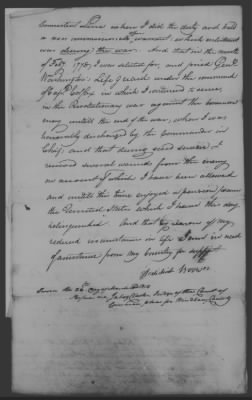 Connecticut Line where I did the duty and held
a non commissioned officers warrant, which enlistment
was during the war. And that in the month
of Feby 1778, I was selected for, and joined Genl.
Washington's Life Guard under the command
of Capt. Colfax in which I continued to serve
in the Revolutionary war against the common
enemy untill the end of the war, when I was
honorably discharged by the Commander in
Chief, and that during said service I
received several wounds from the enemy
on account of which I have been allowed
and untill this time enjoyed a pension from
the United States which I have this day
relinquished. And that by reason of my
reduced circumstances in life I am in need
of assistance from my Country for support
Sworn the
before me Jabez Clark Judge of the Court of
Common pleas for Windham County